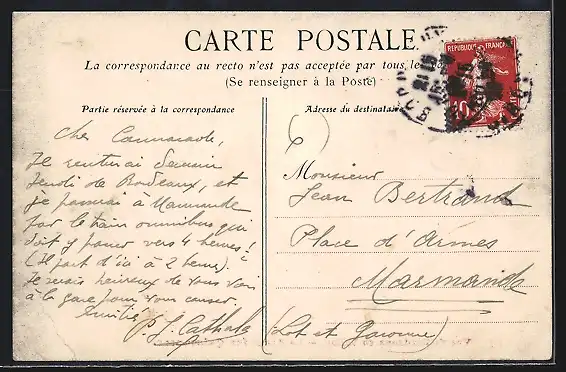 CARTE POSTALE
La correspondance au recto n'est pas acceptée par tous le
(Se renseigner à la Poste)
REPUBLIQUE FRANÇAISE
10
Partie réservée à la correspondance
Adresse du destinataire
Cher Cammarade,
Je rentrerai demain
jeudi de Bordeaux, et
je passerai à Marmande
par le train omnibus qui
doit y passer vers 4 heures!
(Il part d'ici à 2 heures).
Je serais heureux de vous voir
à la gare pour vous causer.
Amitiés
P. L. Cathala
Monsieur
Jean Bertrand
Place d'Armes
Marmande
(Lot et Garonne)